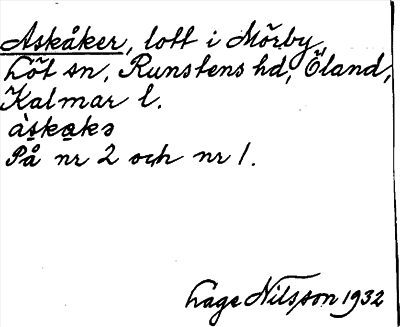 Askåker, lott i Mörby,
Löt sn, Runstens hd, Öland,
Kalmar l.
àskɑkə
På nr 2 och nr 1.
Lage Nilsson 1932